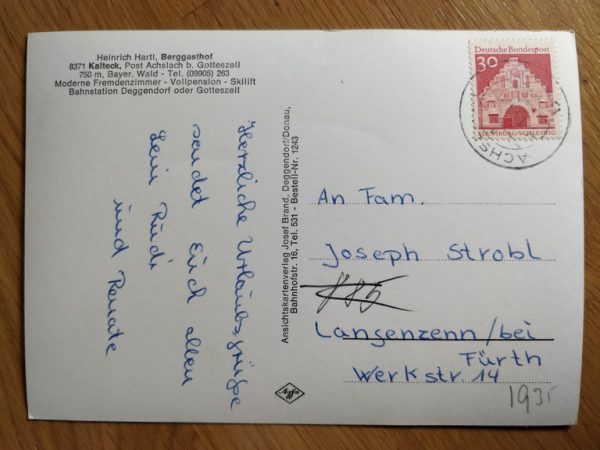 Heinrich Hartl, Berggasthof
8371 Kalteck, Post Achslach b. Gotteszell
750 m, Bayer. Wald - Tel. (09905) 263
Moderne Fremdenzimmer - Vollpension - Skilift
Bahnstation Deggendorf oder Gotteszell
Herzliche Urlaubsgrüße
sendet Euch allen
Rudi
und Renate
Ansichtskartenverlag Josef Brand, Deggendorf/Donau,
Bahnhofstr. 16, Tel. 531 - Bestell-Nr. 1243
Deutsche Bundespost
30
FLENSBURG/SCHLESWIG
An Fam.
Joseph Strobl
Langenzenn/bei
Fürth
Werkstr. 14
193